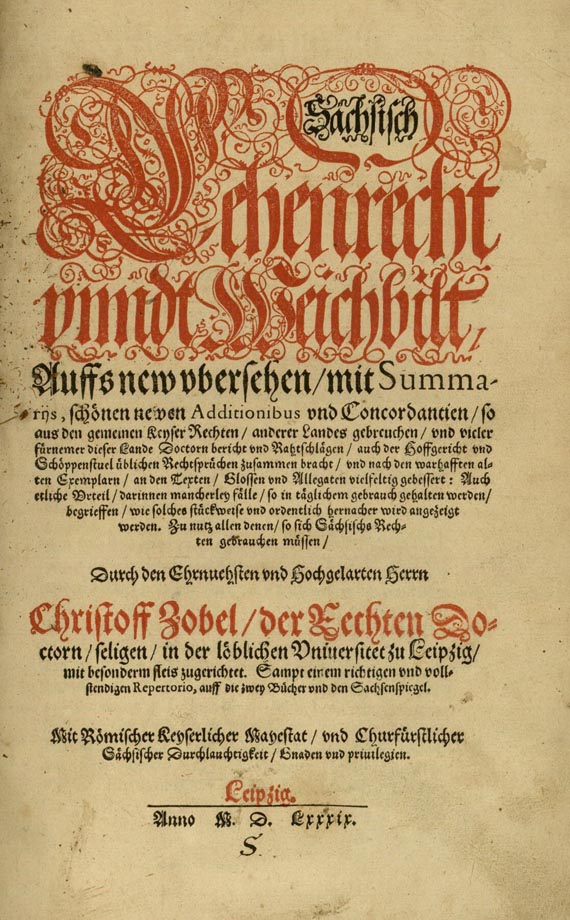 Sächsisch
Lehenrecht
vnndt Weichbilt/
Auffs new vbersehen/ mit Summa-
rijs, schönen newen Additionibus vnd Concordantien/ so
aus den gemeinen Keyser Rechten/ anderer Landes gebreuchen/ vnd vieler
fürnemer dieser Lande Doctorn bericht vnd Rahtschlägen/ auch der Hoffgericht vnd
Schöppenstuel üblichen Rechtsprüchen zusammen bracht/ vnd nach den warhafften al-
ten Exemplarn/ an den Texten/ Glossen vnd Allegaten vielfeltig gebessert: Auch
etliche Vrteil/ darinnen mancherley fälle/ so in täglichem gebrauch gehalten werden/
begrieffen/ wie solches stückweise vnd ordentlich hernacher wird angezeigt
werden. Zu nutz allen denen/ so sich Sächsischs Rech-
ten gebrauchen müssen/
Durch den Ehrnuehsten vnd Hochgelarten Herrn
Christoff Zobel/ der Rechten Do-
ctorn/ seligen/ in der löblichen Vniuersitet zu Leipzig/
mit besonderm fleis zugerichtet. Sampt einem richtigen vnd voll-
stendigen Repertorio, auff die zwey Bücher vnd den Sachsenspiegel.
Mit Römischer Keyserlicher Mayestat/ vnd Churfürstlicher
Sächsischer Durchlauchtigkeit/ Gnaden vnd priuilegien.
Leipzig.
Anno M. D. Lxxxix.
S.